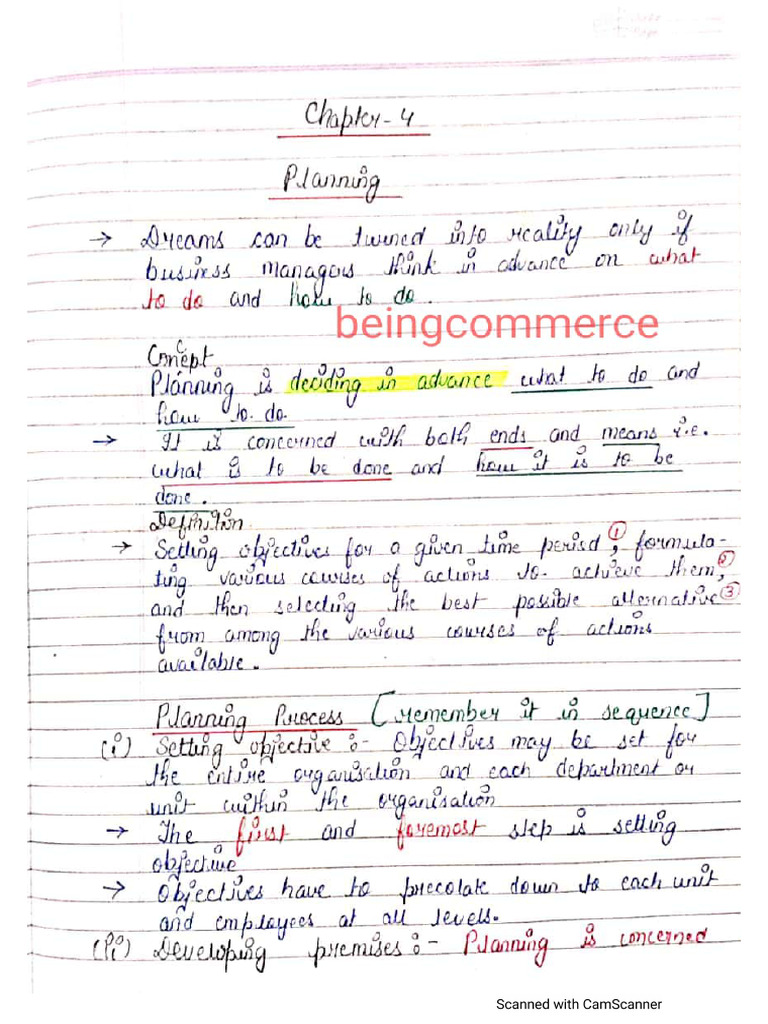 Chapter-4
Planning
→ Dreams can be turned into reality only if
business managers think in advance on what
to do and how to do.
beingcommerce
Concept
Planning is deciding in advance what to do and
how to do.
→ It is concerned with both ends and means i.e.
what is to be done and how it is to be
done.
Definition
→ Setting objectives for a given time period ①, formula-
ting various courses of actions to achieve them, ②
and then selecting the best possible alternative ③
from among the various courses of actions
available.
Planning Process [remember it in sequence]
(i) Setting objective :- Objectives may be set for
the entire organisation and each department or
unit within the organisation
→ The first and foremost step is setting
objective
→ Objectives have to precolate down to each unit
and employees at all levels.
(ii) Developing premises :- Planning is concerned
Scanned with CamScanner